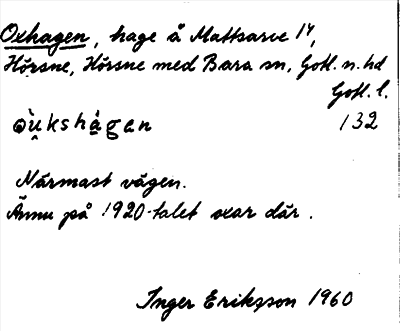 Oxhagen, hage å Mattsarve 1⁴,
Hörsne, Hörsne med Bara sn, Gotl. n. hd
Gotl. l.
132
Närmast vägen.
Ännu på 1920-talet oxar där.
Inger Eriksson 1960